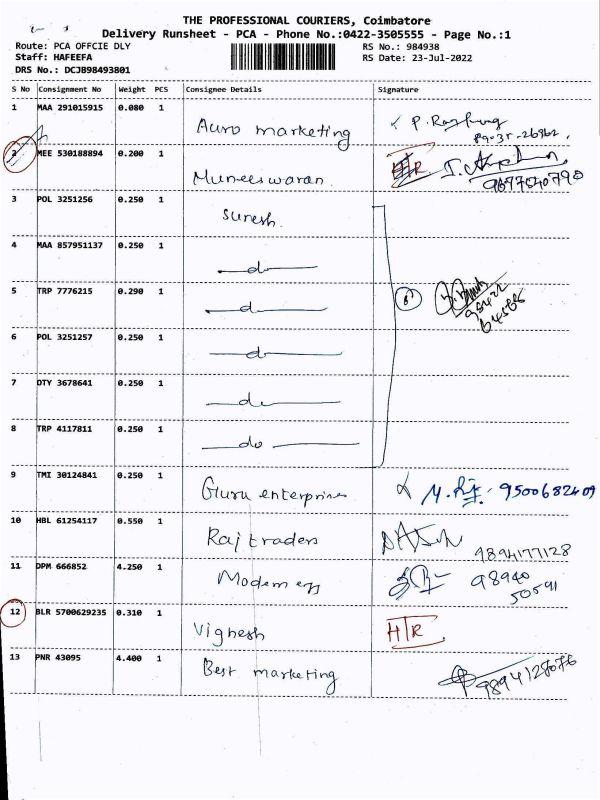 THE PROFESSIONAL COURIERS, Coimbatore
Delivery Runsheet - PCA - Phone No.:0422-3505555 - Page No.:1
Route: PCA OFFCIE DLY
RS No.: 984938
Staff: HAFEEFA
RS Date: 23-Jul-2022
DRS No.: DCJB98493801
S No Consignment No Weight PCS Consignee Details Signature
1 MAA 291015915 0.080 1 Auro marketing
2 MEE 530188894 0.200 1 Muneeswaran HTR 9677540790
3 POL 3251256 0.250 1 Suresh
4 MAA 857951137 0.250 1 do
5 TRP 7776215 0.290 1 do
6 POL 3251257 0.250 1 do
7 OTY 3678641 0.250 1 do
8 TRP 4117811 0.250 1 do
9 TMI 30124841 0.250 1 Guru enterprises 9500682409
10 HBL 61254117 0.550 1 Raj traders 9894177128
11 DPM 666852 4.250 1 Modern 98940
50591
12 BLR 5700629235 0.310 1 Vighesh HTR
13 PNR 43095 4.400 1 Best marketing 9894128076